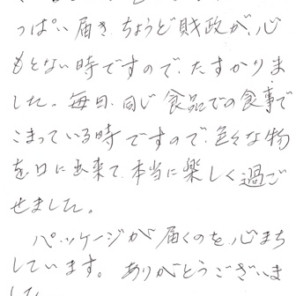 っぱい届きちょうど財政が、心
もとない時ですので、たすかりま
した。毎日、同じ食品での食事で
こまっている時ですので、色々な物
を口に出来て、本当に楽しく過ご
せました。
パッケージが届くのを心まち
しています。ありがとうございま
した